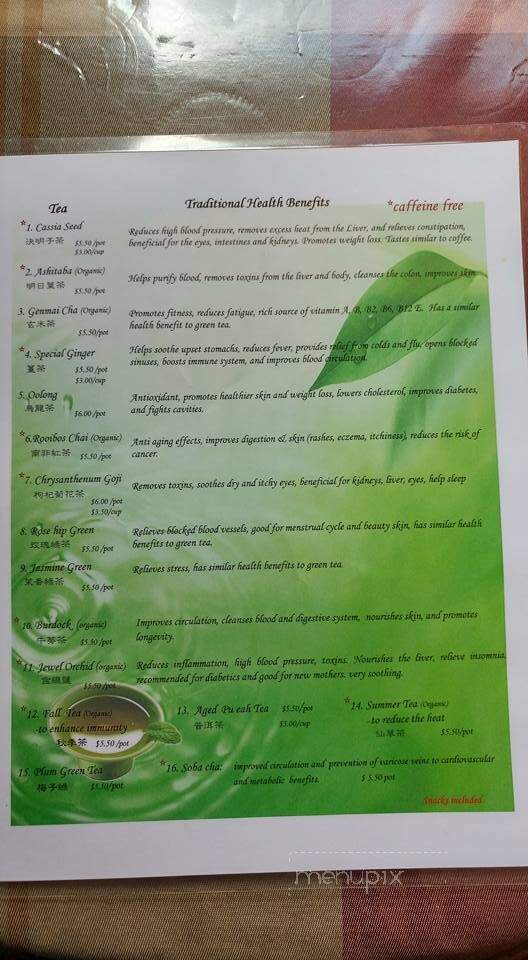 Tea Traditional Health Benefits *caffeine free
*1. Cassia Seed
決明子茶 $5.50 /pot
$3.00/cup
Reduces high blood pressure, removes excess heat from the Liver, and relieves constipation,
beneficial for the eyes, intestines and kidneys. Promotes weight loss. Tastes similar to coffee.
*2. Ashitaba (Organic)
明日葉茶 $5.50 /pot
Helps purify blood, removes toxins from the liver and body, cleanses the colon, improves skin
3. Genmai Cha (Organic)
玄米茶 $5.50/pot
Promotes fitness, reduces fatigue, rich source of vitamin A, B, B2, B6, B12 E. Has a similar
health benefit to green tea.
*4. Special Ginger
薑茶 $5.50 /pot
$3.00/cup
Helps soothe upset stomachs, reduces fever, provides relief from colds and flu, opens blocked
sinuses, boosts immune system, and improves blood circulation.
5. Oolong
烏龍茶 $6.00 /pot
Antioxidant, promotes healthier skin and weight loss, lowers cholesterol, improves diabetes,
and fights cavities.
*6.Rooibos Chai (Organic)
南非紅茶 $5.50 /pot
Anti aging effects, improves digestion & skin (rashes, eczema, itchiness), reduces the risk of
cancer.
*7. Chrysanthenum Goji
枸杞菊花茶
$6.00 /pot
$3.50/cup
Removes toxins, soothes dry and itchy eyes, beneficial for kidneys, liver, eyes, help sleep
8. Rose hip Green
玫瑰綠茶 $5.50 /pot
Relieves blocked blood vessels, good for menstrual cycle and beauty skin, has similar health
benefits to green tea.
9. Jasmine Green
茉香綠茶 $5.50 /pot
Relieves stress, has similar health benefits to green tea.
*10. Burdock (organic)
牛蒡茶 $5.50 /pot
Improves circulation, cleanses blood and digestive system, nourishes skin, and promotes
longevity.
*11. Jewel Orchid (organic)
金線蓮 $5.50 /pot
Reduces inflammation, high blood pressure, toxins. Nourishes the liver, relieve insomnia,
recommended for diabetics and good for new mothers. very soothing.
*12. Fall Tea (Organic)
-to enhance immunity
秋季茶 $5.50 /pot
13. Aged Pu eah Tea $5.50/pot
普洱茶 $3.00/cup
*14. Summer Tea (Organic)
-to reduce the heat
仙草茶 $5.50/pot
15. Plum Green Tea
梅子綠 $5.50/pot
*16. Soba cha: improved circulation and prevention of varicose veins to cardiovascular
and metabolic benefits. $ 5.50 pot
Snacks included
menupix